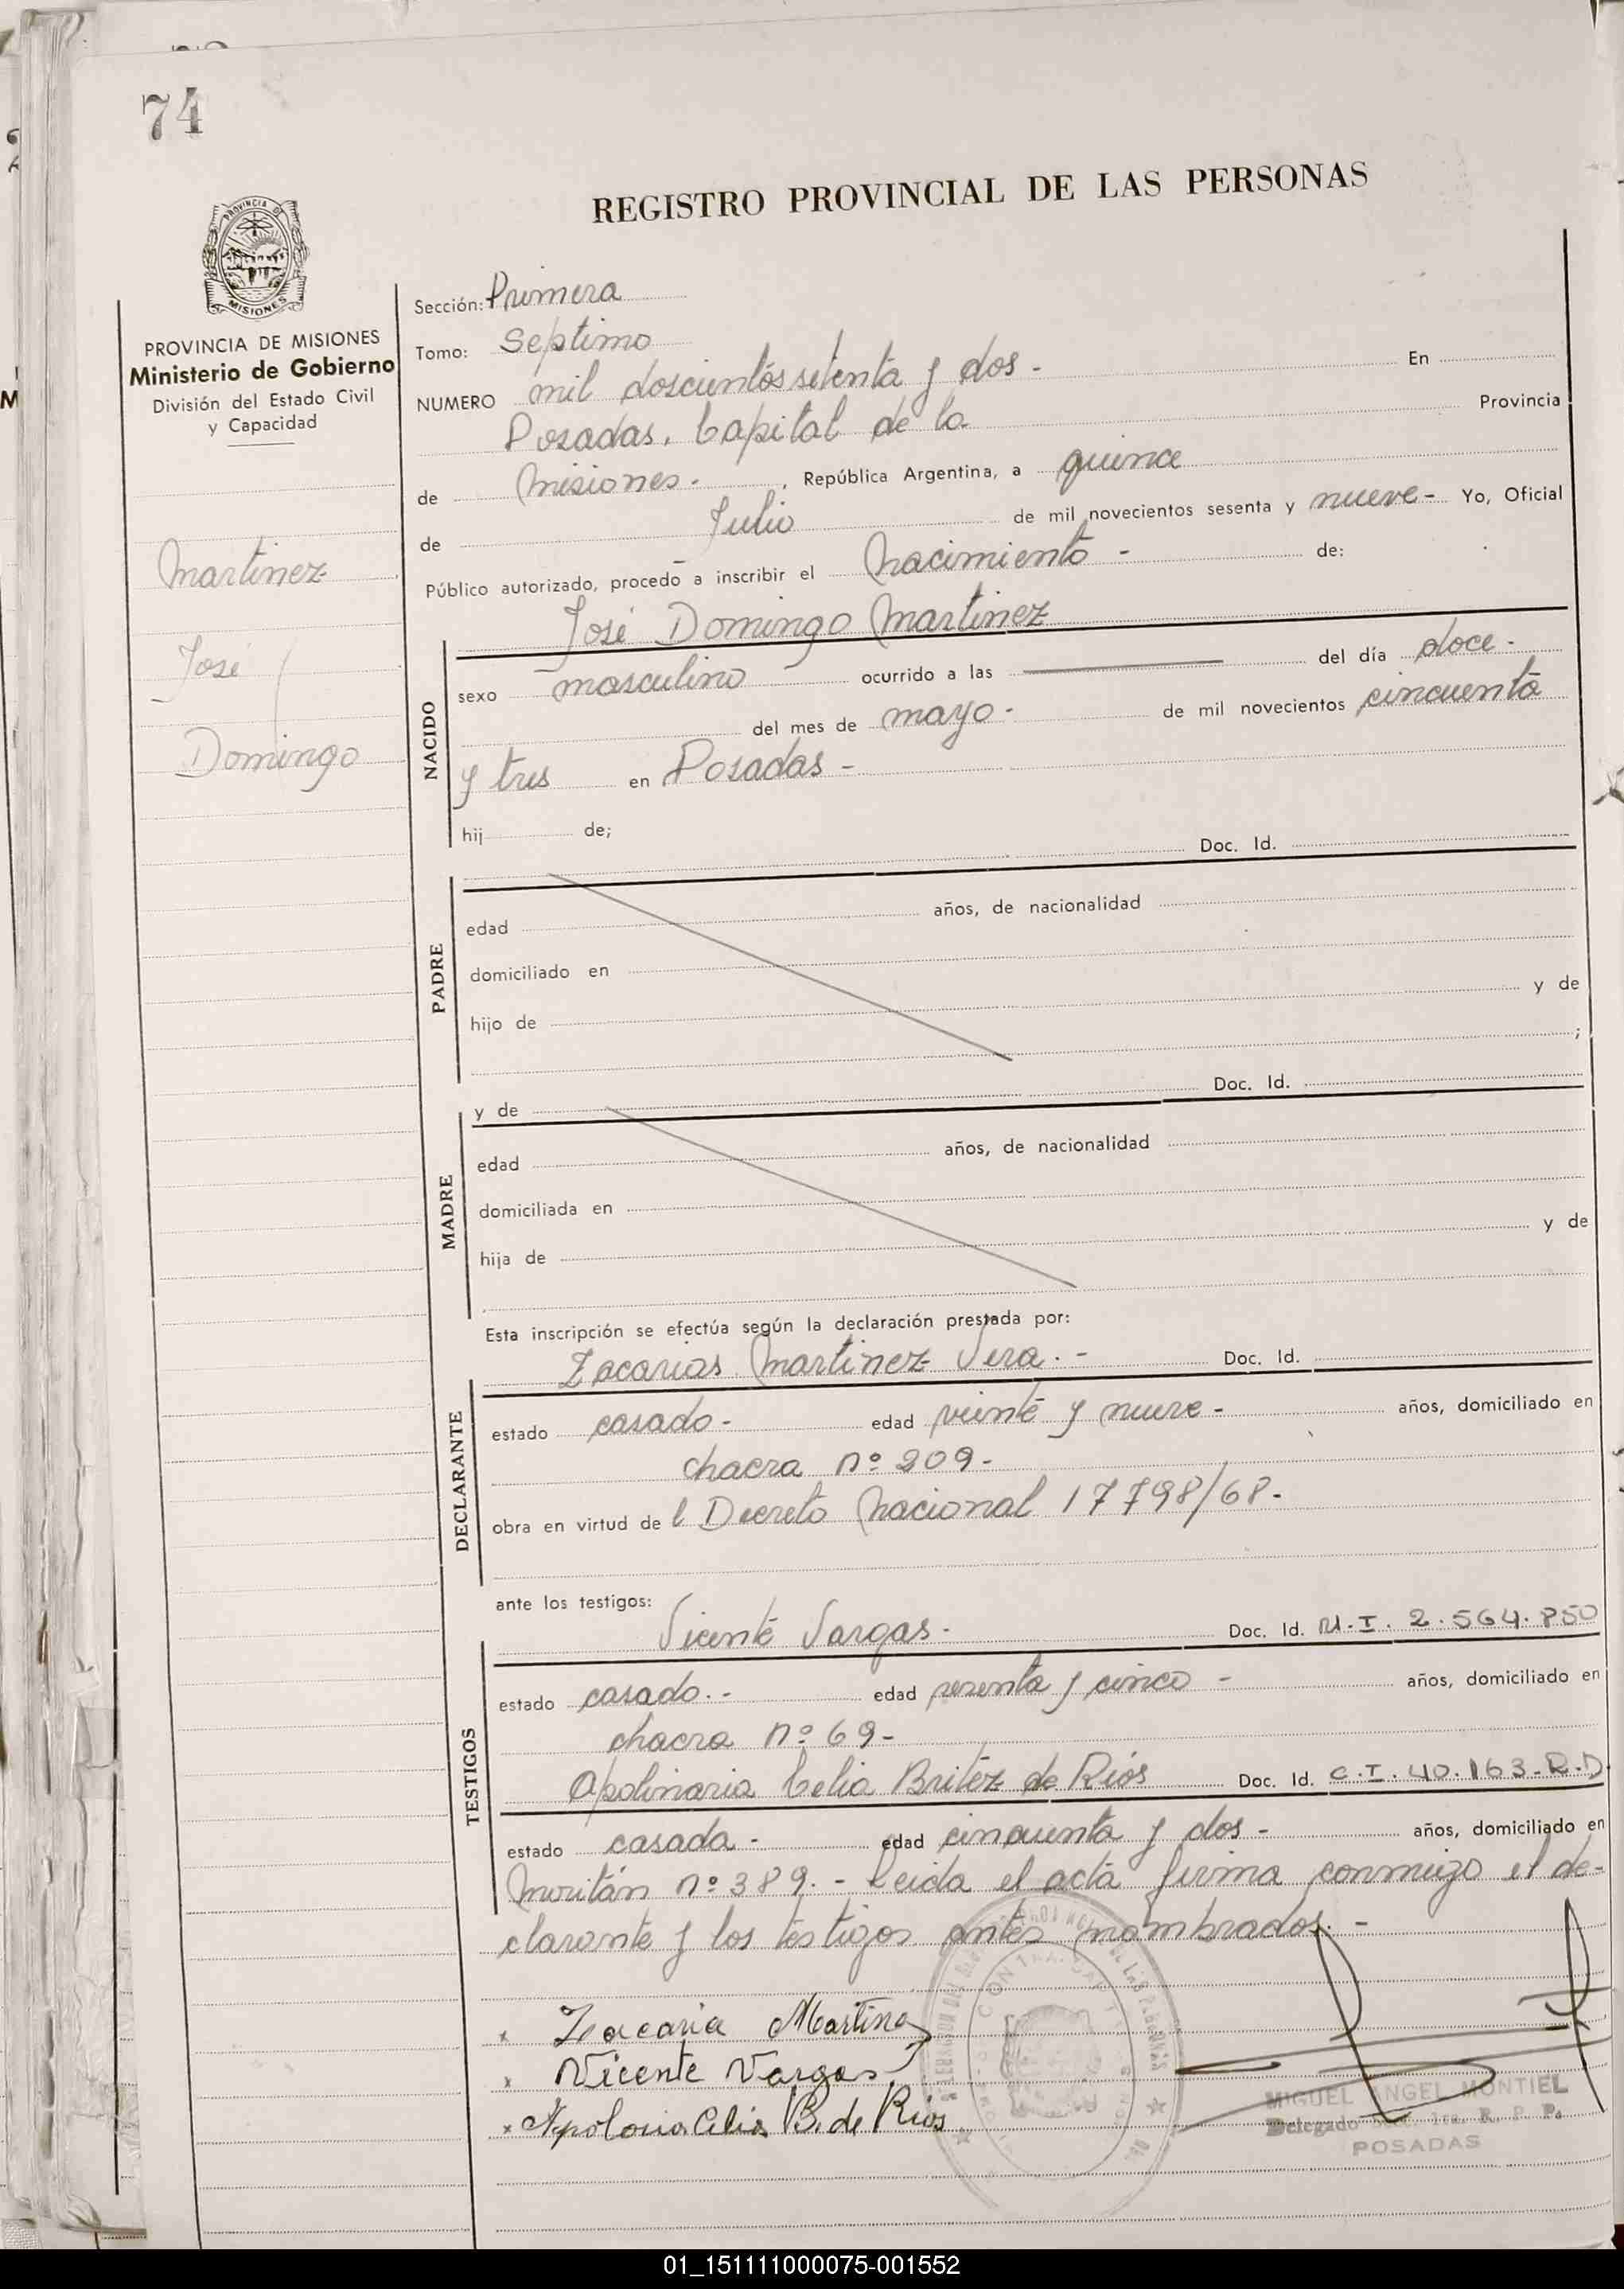 74
REGISTRO PROVINCIAL DE LAS PERSONAS
PROVINCIA DE
MISIONES
PROVINCIA DE MISIONES
Ministerio de Gobierno
División del Estado Civil
y Capacidad
Martinez
José
Domingo
Sección: Primera
Tomo: Septimo
NUMERO mil doscientos setenta y dos - En
Posadas, Capital de la Provincia
de Misiones - , República Argentina, a quince
de Julio de mil novecientos sesenta y nueve - Yo, Oficial
Público autorizado, procedo a inscribir el Nacimiento - de:
José Domingo Martinez
NACIDO
sexo masculino ocurrido a las del día doce -
del mes de mayo - de mil novecientos cincuenta
y tres en Posadas -
hij de;
Doc. Id.
PADRE
edad años, de nacionalidad
domiciliado en
hijo de y de
;
y de Doc. Id.
MADRE
edad años, de nacionalidad
domiciliada en
hija de y de
Esta inscripción se efectúa según la declaración prestada por:
Zacarias Martinez Vera. - Doc. Id.
DECLARANTE
estado casado - edad veinte y nueve - años, domiciliado en
chacra nº 209 -
obra en virtud de l Decreto Nacional 17798/68 -
ante los testigos:
Vicente Vargas - Doc. Id. M.I. 2.564.850
TESTIGOS
estado casado. - edad sesenta y cinco - años, domiciliado en
chacra nº 69 -
Apolinaria Celia Britez de Rios Doc. Id. C.I. 40.163-R.D.
estado casada - edad cincuenta y dos - años, domiciliado en
Moritán nº 389. - Leida el acta firma conmigo el de-
clarante y los testigos antes nombrados. -
x Zacaria Martinez
x Vicente Vargas
x Apolonia Celia B. de Rios
MIGUEL ANGEL MONTIEL
Delegado 1ra. R. P. P.
POSADAS
01_151111000075-001552